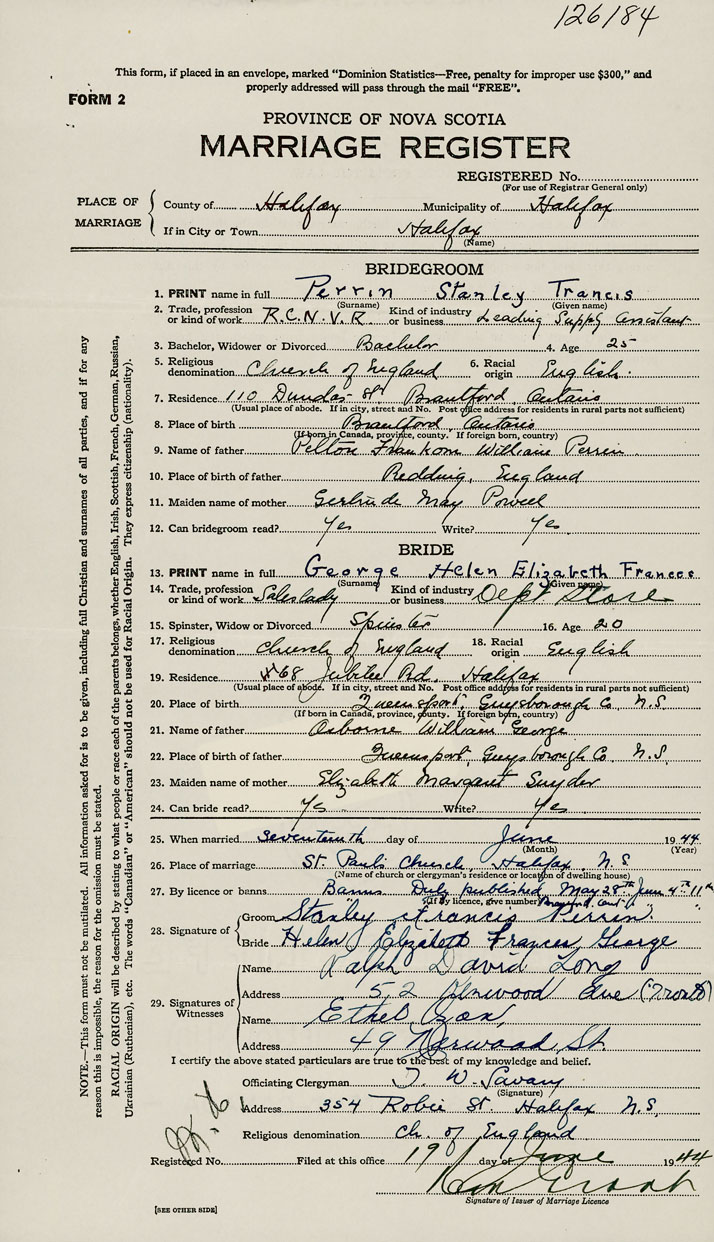 126184
This form, if placed in an envelope, marked "Dominion Statistics—Free, penalty for improper use $300," and
properly addressed will pass through the mail "FREE".
FORM 2
PROVINCE OF NOVA SCOTIA
MARRIAGE REGISTER
REGISTERED No.
(For use of Registrar General only)
PLACE OF MARRIAGE
County of Halifax Municipality of Halifax
If in City or Town Halifax
(Name)
BRIDEGROOM
1. PRINT name in full Perrin Stanley Francis
(Surname) (Given name)
2. Trade, profession or kind of work R.C.N.V.R. Kind of industry or business Leading Supply Assistant
3. Bachelor, Widower or Divorced Bachelor 4. Age 25
5. Religious denomination Church of England 6. Racial origin English
7. Residence 110 Dundas St Brantford, Ontario
(Usual place of abode. If in city, street and No. Post office address for residents in rural parts not sufficient)
8. Place of birth Brantford, Ontario
(If born in Canada, province, county. If foreign born, country)
9. Name of father William Perrin
10. Place of birth of father Redding, England
11. Maiden name of mother Gertrude May Powell
12. Can bridegroom read? Yes Write? Yes
BRIDE
13. PRINT name in full George Helen Elizabeth Frances
(Surname) (Given name)
14. Trade, profession or kind of work Saleslady Kind of industry or business Dept Store
15. Spinster, Widow or Divorced Spinster 16. Age 20
17. Religious denomination Church of England 18. Racial origin English
19. Residence 68 Jubilee Rd. Halifax
(Usual place of abode. If in city, street and No. Post office address for residents in rural parts not sufficient)
20. Place of birth Queensport, Guysborough Co. N.S.
(If born in Canada, province, county. If foreign born, country)
21. Name of father Osborne William George
22. Place of birth of father Queensport, Guysborough Co. N.S.
23. Maiden name of mother Elizabeth Margaret Snyder
24. Can bride read? Yes Write? Yes
25. When married seventeenth day of June 1944
(Month) (Year)
26. Place of marriage St. Paul's Church, Halifax, N.S.
(Name of church or clergyman's residence or location of dwelling house)
27. By licence or banns Banns Duly published May 28th June 4th 11th
(If by licence, give number
28. Signature of Groom Stanley Francis Perrin
Bride Helen Elizabeth Frances George
29. Signatures of Witnesses
Name Ralph David Long
Address 52 Ave
Name Ethel
Address 49 Norwood St.
I certify the above stated particulars are true to the best of my knowledge and belief.
Officiating Clergyman T. W. Savary
(Signature)
Address 354 Robie St. Halifax N.S.
Religious denomination Ch. of England
Registered No. Filed at this office 19 day of June 1944
Signature of Issuer of Marriage Licence
[SEE OTHER SIDE]
NOTE.—This form must not be mutilated. All information asked for is to be given, including full Christian and surnames of all parties, and if for any
reason this is impossible, the reason for the omission must be stated.
RACIAL ORIGIN will be described by stating to what people or race each of the parents belongs, whether English, Irish, Scottish, French, German, Russian,
Ukrainian (Ruthenian), etc. The words "Canadian" or "American" should not be used for Racial Origin. They express citizenship (nationality).